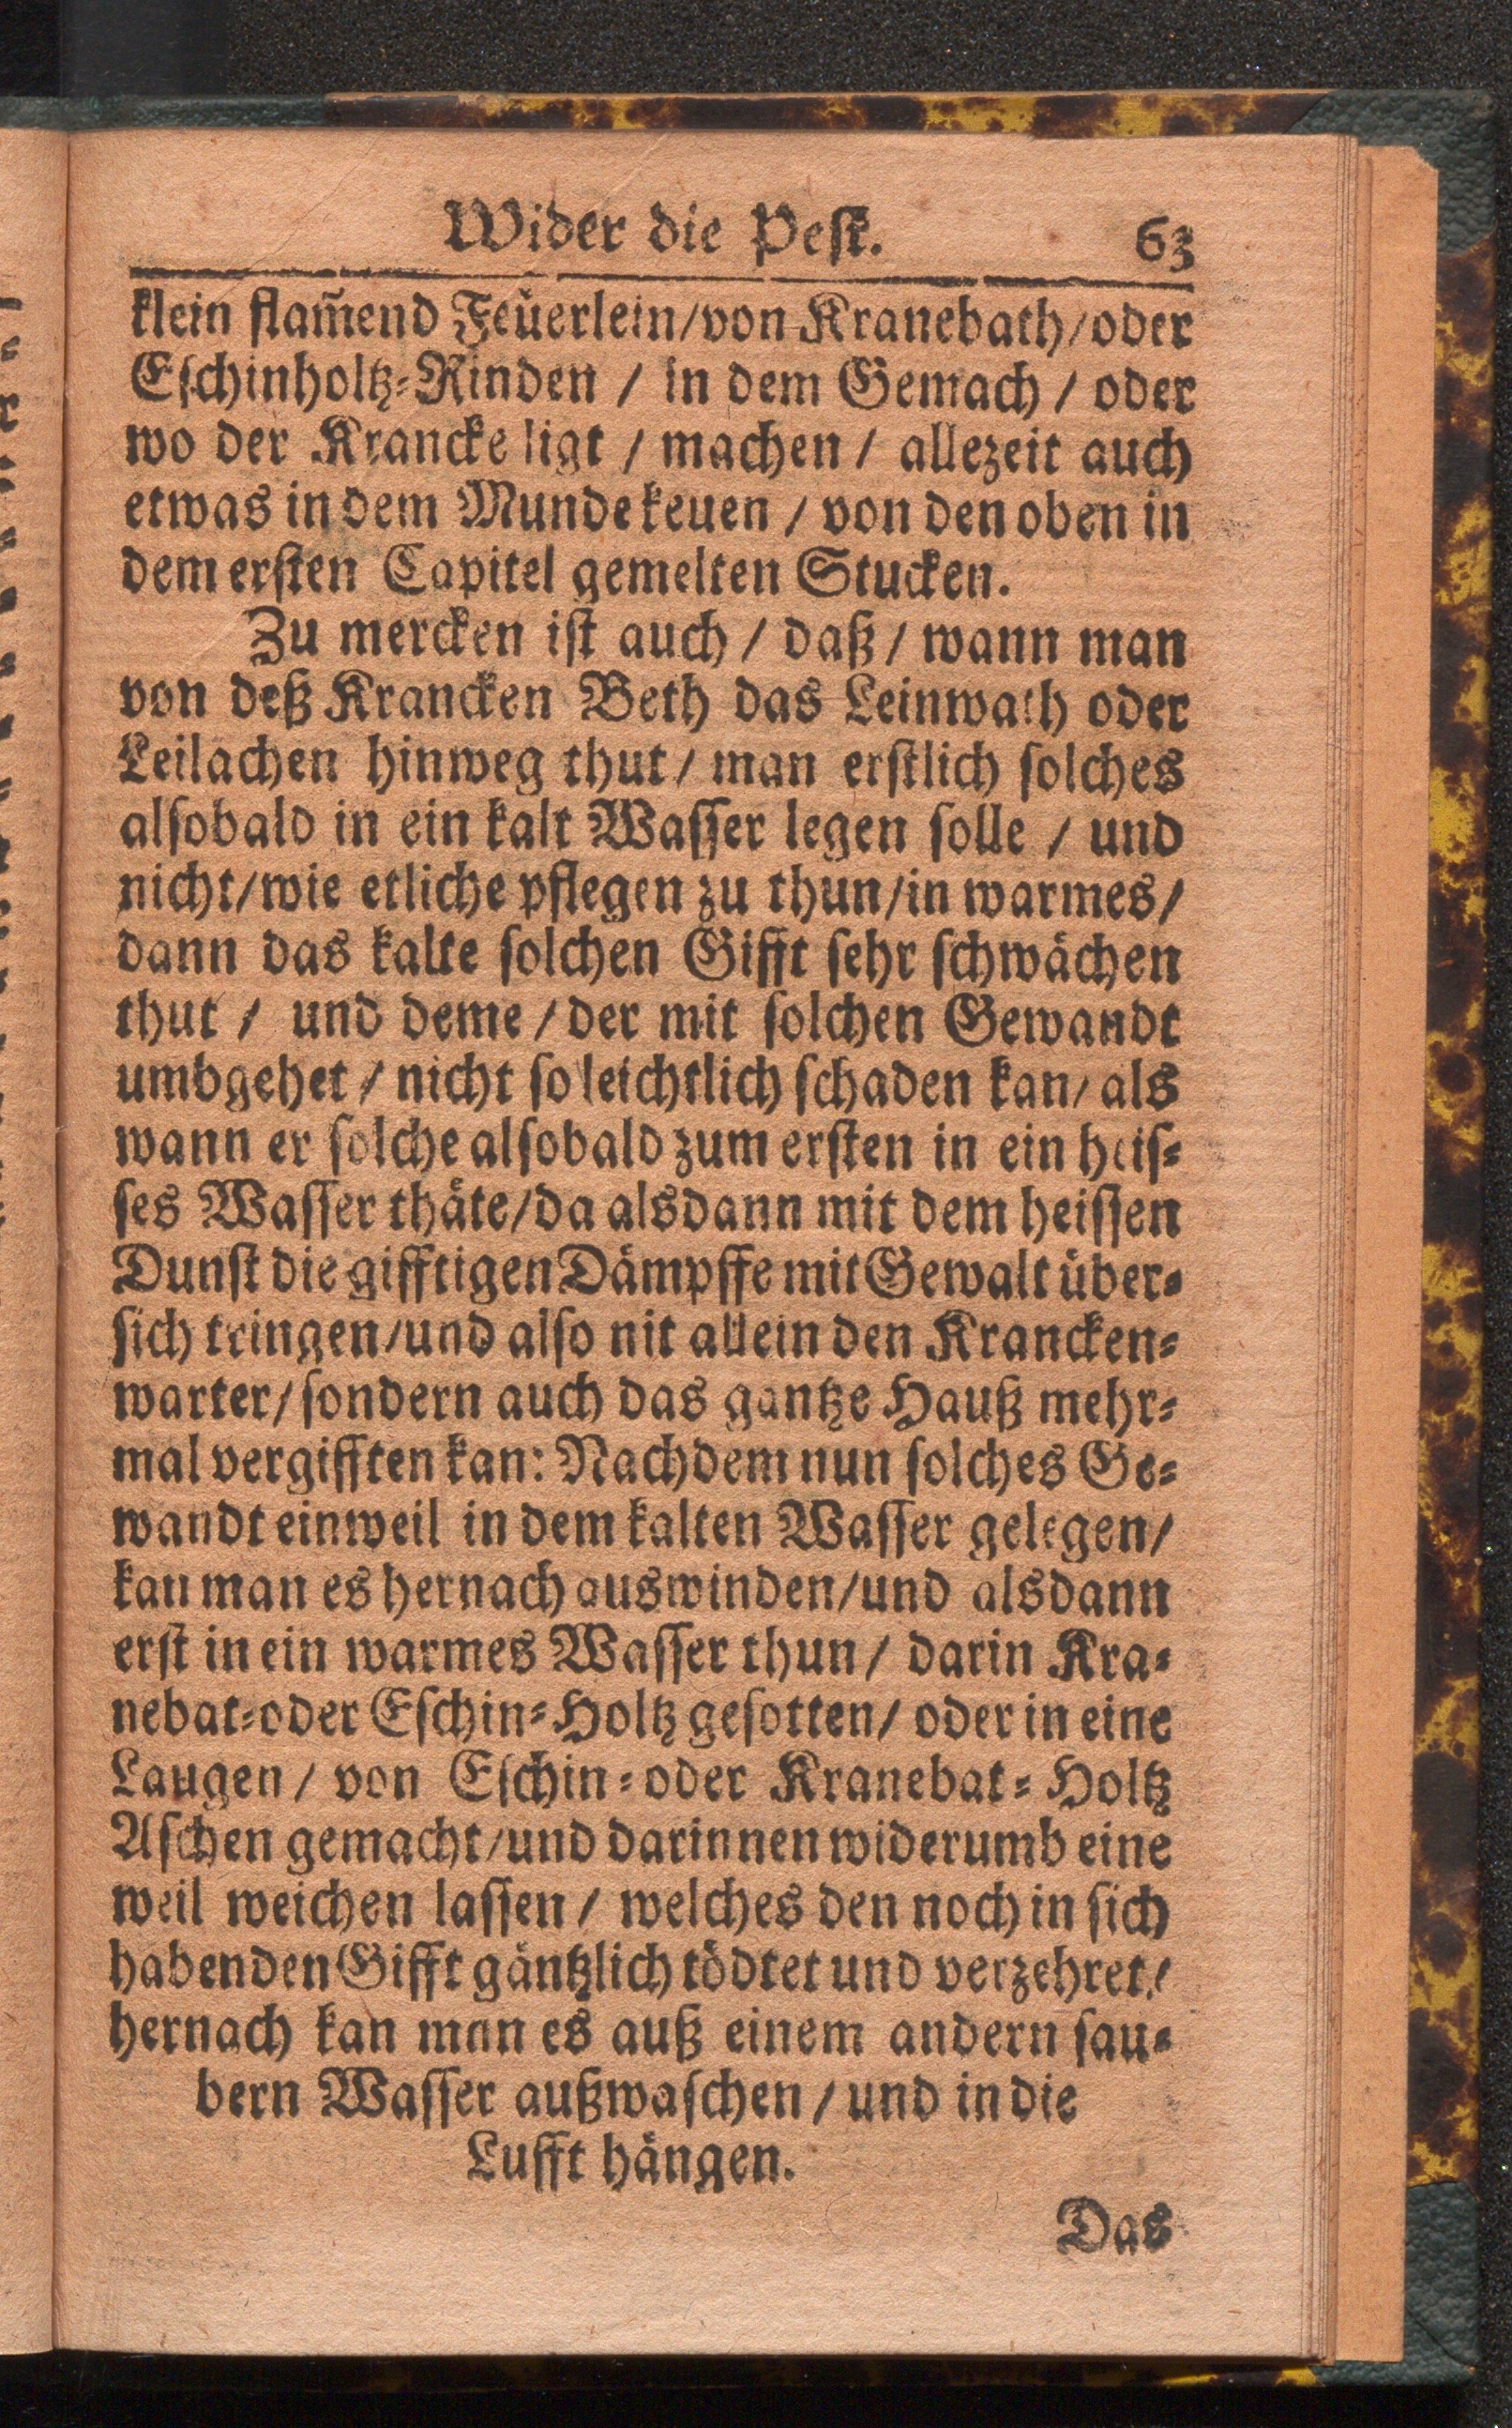 Wider die Pest. 63
klein flam̃end Feüerlein/von Kranebath/oder
Eschinholtz-Rinden / in dem Gemach / oder
wo der Krancke ligt / machen / allezeit auch
etwas in dem Munde keuen / von den oben in
dem ersten Capitel gemelten Stucken.
Zu mercken ist auch / daß / wann man
von deß Krancken Beth das Leinwath oder
Leilachen hinweg thut / man erstlich solches
alsobald in ein kalt Wasser legen solle / und
nicht/wie etliche pflegen zu thun/in warmes/
dann das kalte solchen Gifft sehr schwächen
thut / und deme / der mit solchen Gewandt
umbgehet / nicht so leichtlich schaden kan/ als
wann er solche alsobald zum ersten in ein heis-
ses Wasser thäte/da alsdann mit dem heissen
Dunst die gifftigen Dämpffe mit Gewalt über-
sich tringen/und also nit allein den Krancken-
warter/sondern auch das gantze Hauß mehr-
mal vergifften kan: Nachdem nun solches Ge-
wandt einweil in dem kalten Wasser gelegen/
kan man es hernach auswinden/und alsdann
erst in ein warmes Wasser thun / darin Kra-
nebat-oder Eschin-Holtz gesotten/ oder in eine
Laugen / von Eschin-oder Kranebat-Holtz
Aschen gemacht/und darinnen widerumb eine
weil weichen lassen / welches den noch in sich
habenden Gifft gäntzlich tödtet und verzehret/
hernach kan man es auß einem andern sau-
bern Wasser außwaschen / und in die
Lufft hängen.
Das